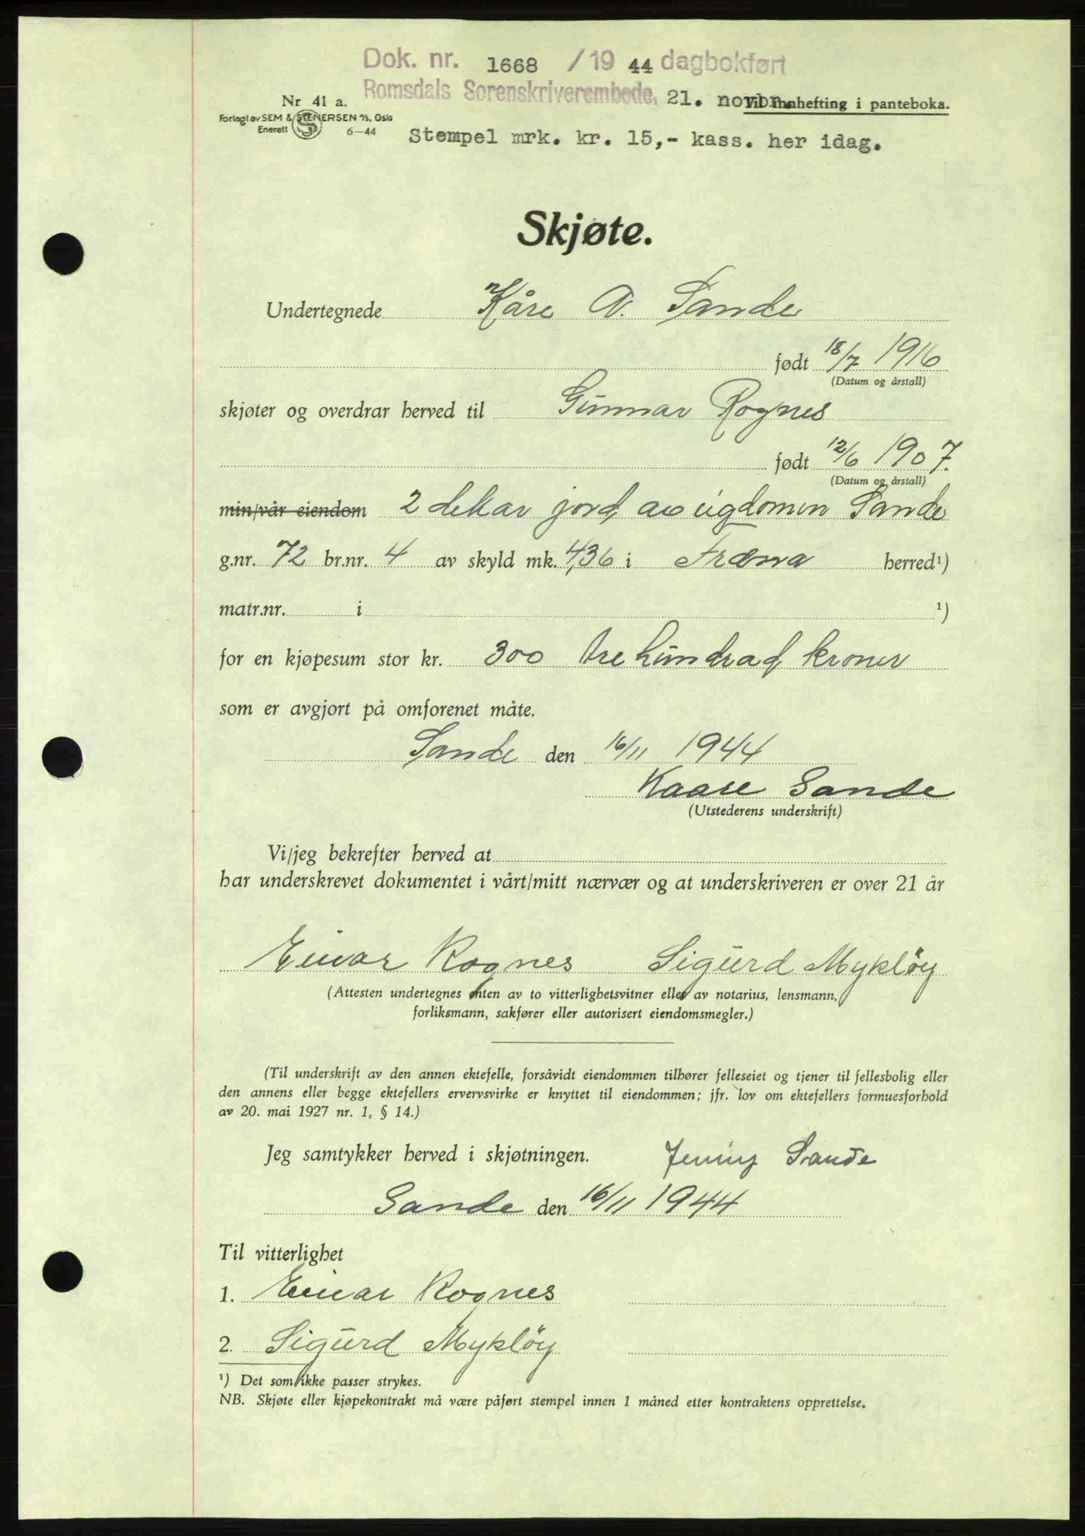 Dok. nr. 1668 /19 44 dagbokført
Romsdals Sorenskriverembede, 21. novbr.
Nr 41 a. Til innhefting i panteboka.
Forlagt av SEM & STENERSEN A/S, Oslo
Enerett 6-44
Stempel mrk. kr. 15,- kass. her idag.
Skjøte.
Undertegnede Kåre A. Sande
født 18/7 1916
(Datum og årstall)
skjøter og overdrar herved til Gunnar Rognes
født 12/6 1907.
(Datum og årstall)
min/vår eiendom 2 dekar jord av eigdomen Sande
g.nr. 72 br.nr. 4 av skyld mk. 4,36 i Fræna herred¹)
matr.nr. i ¹)
for en kjøpesum stor kr. 300 trehundrad kroner
som er avgjort på omforenet måte.
Sande den 16/11 1944
Kaare Sande
(Utstederens underskrift)
Vi/jeg bekrefter herved at
har underskrevet dokumentet i vårt/mitt nærvær og at underskriveren er over 21 år
Einar Rognes Sigurd Mykløy
(Attesten undertegnes enten av to vitterlighetsvitner eller av notarius, lensmann,
forliksmann, sakfører eller autorisert eiendomsmegler.)
(Til underskrift av den annen ektefelle, forsåvidt eiendommen tilhører felleseiet og tjener til fellesbolig eller
den annens eller begge ektefellers ervervsvirke er knyttet til eiendommen; jfr. lov om ektefellers formuesforhold
av 20. mai 1927 nr. 1, § 14.)
Jeg samtykker herved i skjøtningen. Jenny Sande
Sande den 16/11 1944
Til vitterlighet
1. Einar Rognes
2. Sigurd Mykløy
¹) Det som ikke passer strykes.
NB. Skjøte eller kjøpekontrakt må være påført stempel innen 1 måned etter kontraktens opprettelse.